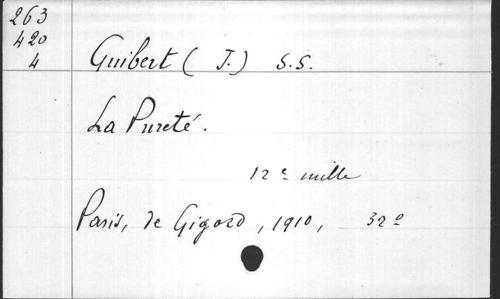 263
420
4
Guibert ( J. ) S.S.
La Pureté.
12e mille
Paris, de Gigord, 1910, 32º